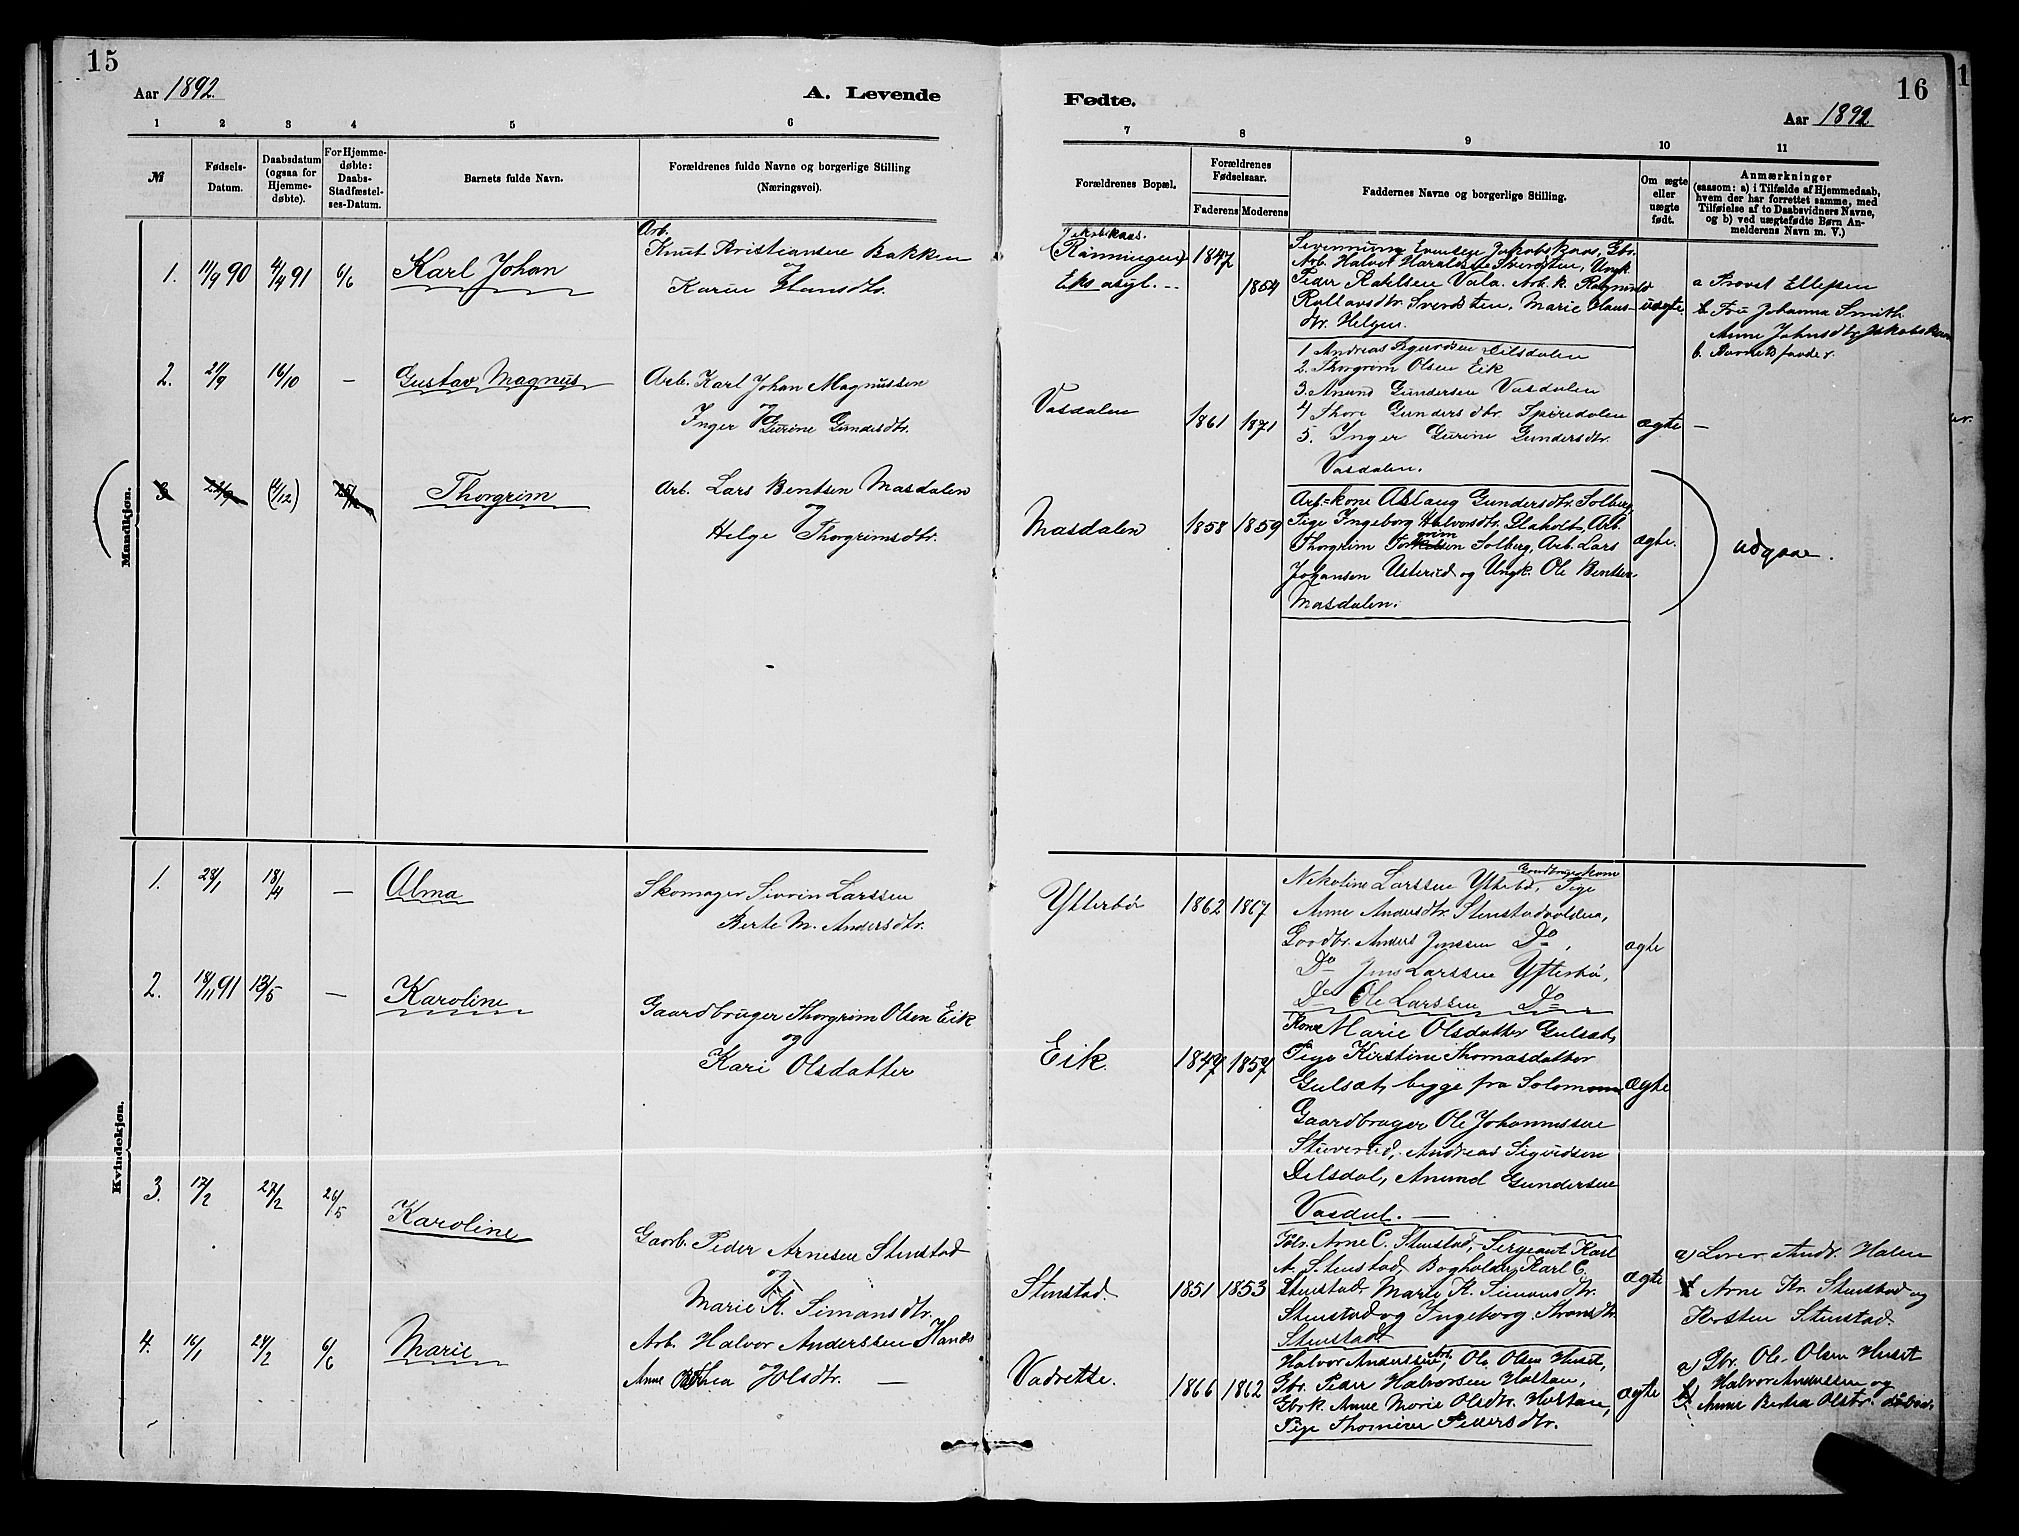 15
Aar 1892.
A. Levende
1 2 3 4 5 6
№
Fødsels-
Datum.
Daabsdatum
(ogsaa for
Hjemme-
døbte).
For Hjemme-
døbte:
Daabs-
Stadfæstel-
ses-Datum.
Barnets fulde Navn.
Forældrenes fulde Navne og borgerlige Stilling
(Næringsvei).
Mandkjøn.
1. 11/9 90 4/4 91 6/6 Karl Johan
Arb.
Knut Kristiansen Bakken
og
Karen Hansdtr.
2. 27/9 16/10 - Gustav Magnus
Arb. Karl Johan Magnussen
og
Inger Gurine Gundersdtr.
3. (4/12) Thorgrim
Arb. Lars Bentsen Masdalen
og
Helge Thorgrimsdtr.
Kvindekjøn.
1. 28/1 18/4 - Alma
Skomager Sivrin Larssen
Berte M. Andersdtr.
2. 18/11 91 13/5 - Karoline
Gaardbruger Thorgrim Olsen Eik
og
Kari Olsdatter
3. 17/2 27/2 26/5 Karoline
Gaarb. Peder Arnesen Stenstad
og
Marie K. Simonsdtr.
4. 16/1 24/2 6/6 Marie
Arb. Halvor Anderssen
Anne Olsdtr. —
16
Fødte.
Aar 1892
7 8 9 10 11
Forældrenes Bopæl.
Forældrenes
Fødselsaar.
Faderens Moderens
Faddernes Navne og borgerlige Stilling.
Om ægte
eller
uægte
født.
Anmærkninger
(saasom: a) i Tilfælde af Hjemmedaab,
hvem der har forrettet samme, med
Tilføielse af to Daabsvidners Navne,
og b) ved uægtefødte Børn An-
melderens Navn m. V.)
Jakobskaas.
(Rønningen)
Eks asyl. --
1847
1854
Arb. Halvor Haraldsen Sverdsten, Ungk
Peder Kahlsen Vala. Arb. k. Ragnild
Rollavsdtr. Sverdsten, Marie Hans-
dtr. Helgen.
uægte
a Provst Ellefsen
b Fru Johanna Smith
Anne Johnsdtr Jakobskaas
b. Barnets fader.
Vasdalen
1861 1871
1 Andreas Sigurdsen Dilsdalen
2. Thorgrim Olsen Eik
3. Anund Gundersen Vasdalen
4 Thore Gundersdtr. Spiredalen
5. Inger Gurine Gundersdtr.
Vasdalen.
ægte -
Masdalen
1858 1859
Arb=kone Aslaug Gundersdtr. Solberg,
Pige Ingeborg Halvorsdtr. Arb.
Thorgrim Solberg, Arb. Lars
Johansen Usterud og Ungk. Ole Bentsen
Masdalen.
ægte.
udgaar.
Ytterbø
1862 1867
Gaardbrugerkone
Nikoline Larssen Ytterbø, Pige
Anne Andersdtr. Stenstadvolden,
Gaardbr. Anders Jenssen Do,
Do Jens Larssen Ytterbø,
Do Ole Larssen Do
ægte
Eik
1847 1857
Kone Marie Olsdatter Gulset,
Pige Kirstine Thomasdatter
Gulset, begge fra Solom
Gaardbruger Ole Johannessen
Stuverød, Andreas Sigurdsen
Dilsdal, Anund Gundersen
Vasdal. —
ægte
Stenstad
1851 1853
Arne C. Stenstad, Sergeant Karl
A. Stenstad, Bogholder Karl C.
Stenstad, Marte K. Simonsdtr.
Stenstad og Ingeborg
Stenstad
ægte
a) Lærer Andr. Halen
b Arne Kr. Stenstad og
Kersten Stenstad
Vadrette.
1866 1862
Halvor Anderssen, Arb. Ole Olsen Huset,
Gbr. Peder Halvorsen Holtan,
Gbrk. Anne Marie Olsdtr. Holtan,
Pige Thomine Pedersdtr.
ægte
a) Gbr. Ole Olsen Huset
b. Halvor Anderssen og
Anne Olsdtr.